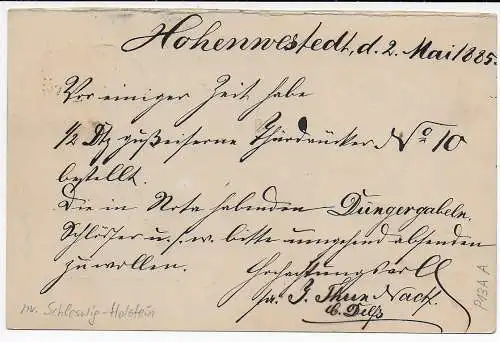 Hohenwestedt, d. 2. Mai 1885.
Vor einiger Zeit habe
1/2 Dtz gußeiserne Thürdrücker No 10
bestellt.
Die in Nota habenden Düngergabeln,
Schlösser u. s. w. bitte umgehend absenden
zu wollen.
Hochachtungsvoll
pr. J. Thun Nachf.
nr. Schleswig-Holstein
P13A A